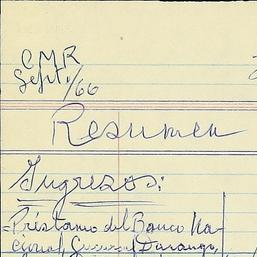 CMR
Sept./66
Resumen
Ingresos:
Préstamo del Banco Na-
cional, Durango,